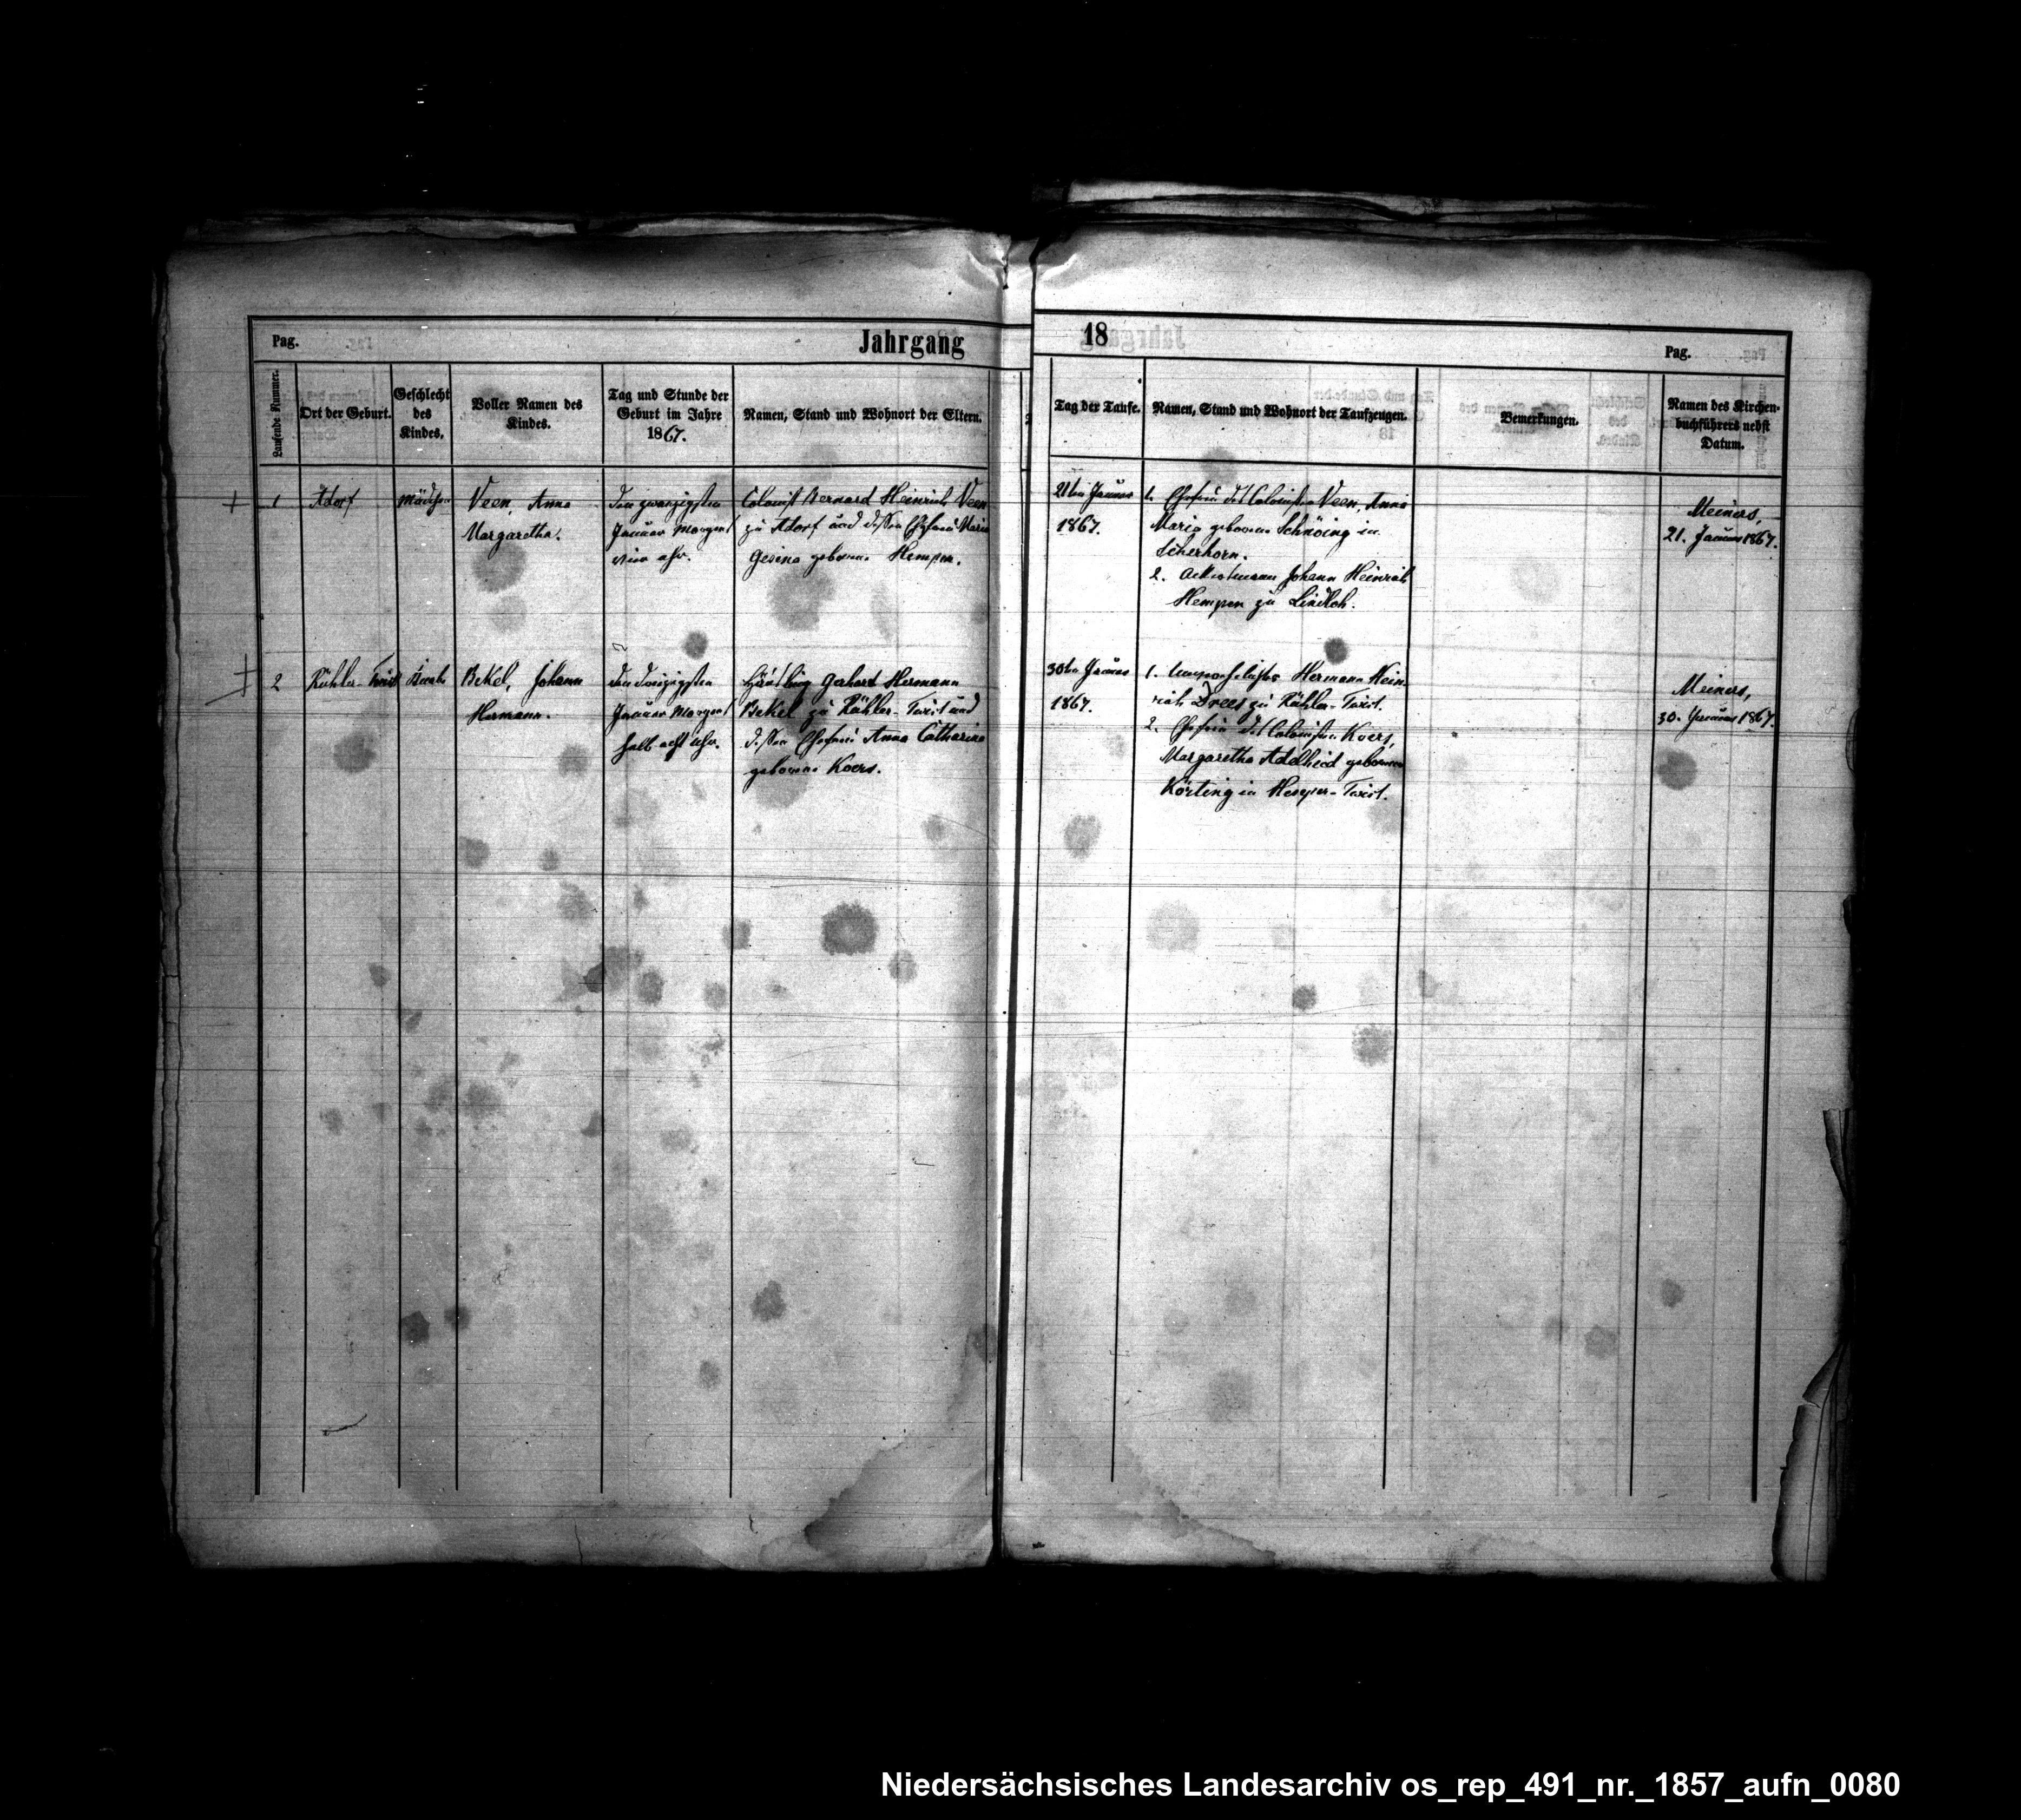 Pag.
Jahrgang 18
Pag.
Laufende Nummer.
Ort der Geburt.
Geschlecht
des
Kindes.
Voller Namen des
Kindes.
Tag und Stunde der
Geburt im Jahre
1867.
Namen, Stand und Wohnort der Eltern.
Tag der Taufe.
Namen, Stand und Wohnort der Taufzeugen.
Bemerkungen.
Namen des Kirchen-
buchführers nebst
Datum.
1
Adorf
Mädchen
Veen, Anna
Margaretha.
den zwanzigsten
Januar Morgens
vier Uhr.
Colonist Bernard Heinrich Veen
zu Adorf und dessen Ehefrau Maria
Gesina geborene Hempen.
21ten Januar
1867.
1. Ehefrau des Colonisten Veen, Anna
Maria geborene Schnöing in
2. Ackersmann Johann Heinrich
Hempen zu Lindloh.
Meiners,
21. Januar 1867.
2
Rühler-Twist
Knabe
Bekel, Johann
Hermann.
den dreizigsten
Januar Morgens
halb acht Uhr.
Häusling Gerhard Hermann
Bekel zu Rühler-Twist und
dessen Ehefrau Anna Catharina
geborene Koers.
30ten Januar
1867.
1. Hermann Hein-
rich Drees zu Rühler-Twist.
2. Ehefrau des Colonisten Koers,
Margaretha Adelheid geborene
Körting in Hesper-Twist.
Meiners,
30. Januar 1867.
Niedersächsisches Landesarchiv os_rep_491_nr._1857_aufn_0080